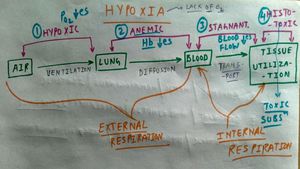 HYPOXIA → LACK OF O₂
PO₂ ↓es
① HYPOXIC
② ANEMIC
Hb ↓es
③ STAGNANT
BLOOD ↓es
FLOW
④ HISTO-
TOXIC
AIR
VENTILATION
LUNG
DIFFUSION
BLOOD
TRANS-
PORT
TISSUE
UTILIZA-
TION
TOXIC
SUBSⁿ
EXTERNAL
RESPIRATION
INTERNAL
RESPIRATION